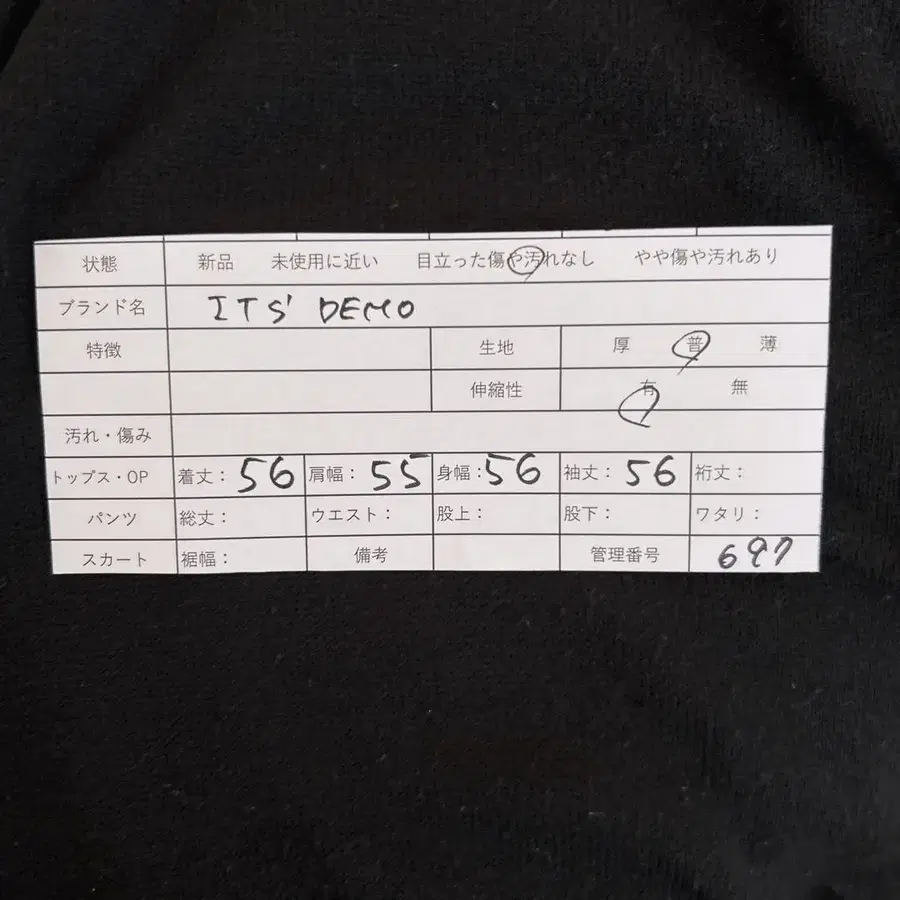 状態 新品 未使用に近い 目立った傷や汚れなし やや傷や汚れあり
ブランド名 ITS' DEMO
特徴 生地 厚 普 薄
伸縮性 有 無
汚れ・傷み
トップス・OP 着丈：56 肩幅：55 身幅：56 袖丈：56 裄丈：
パンツ 総丈： ウエスト： 股上： 股下： ワタリ：
スカート 裾幅： 備考 管理番号 697